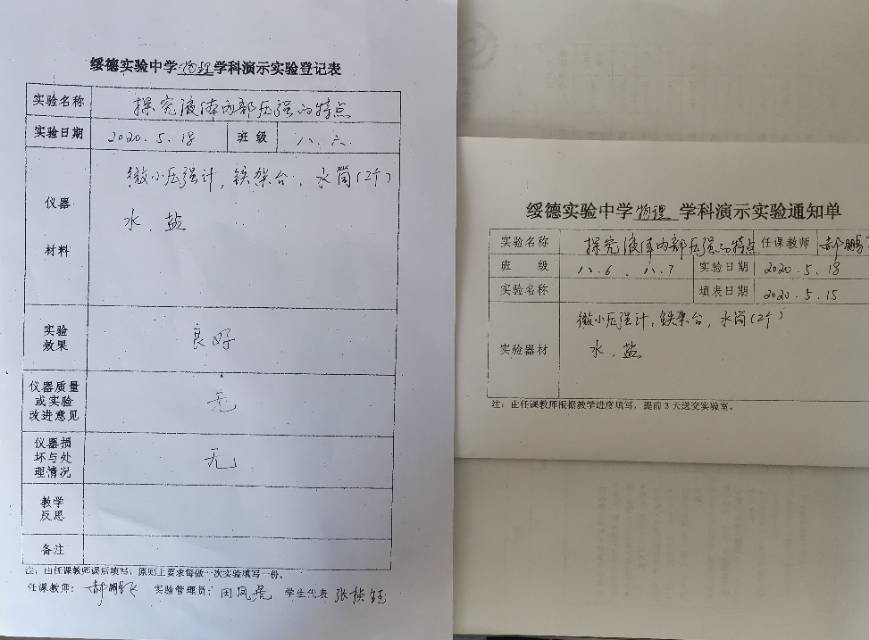 绥德实验中学物理学科演示实验登记表
实验名称 探究液体内部压强的特点
实验日期 2020.5.18 班级 八.六.
仪器
材料
微小压强计，铁架台，水筒(2个)
水、盐
实验
效果
良好
仪器质量
或实验
改进意见
无
仪器损
坏与处
理情况
无
教学
反思
备注
注：由任课教师课后填写，原则上要求每做一次实验填写一份。
任课教师： 郝鹏飞 实验管理员： 田凤 学生代表 张
绥德实验中学物理 学科演示实验通知单
实验名称 探究液体内部压强的特点 任课教师 郝鹏
班 级 八.6 、八.7 实验日期 2020.5.18
实验名称 填表日期 2020.5.15
实验器材
微小压强计，铁架台，水筒(2个)
水、盐
注：由任课教师根据教学进度填写，提前3天送交实验室。